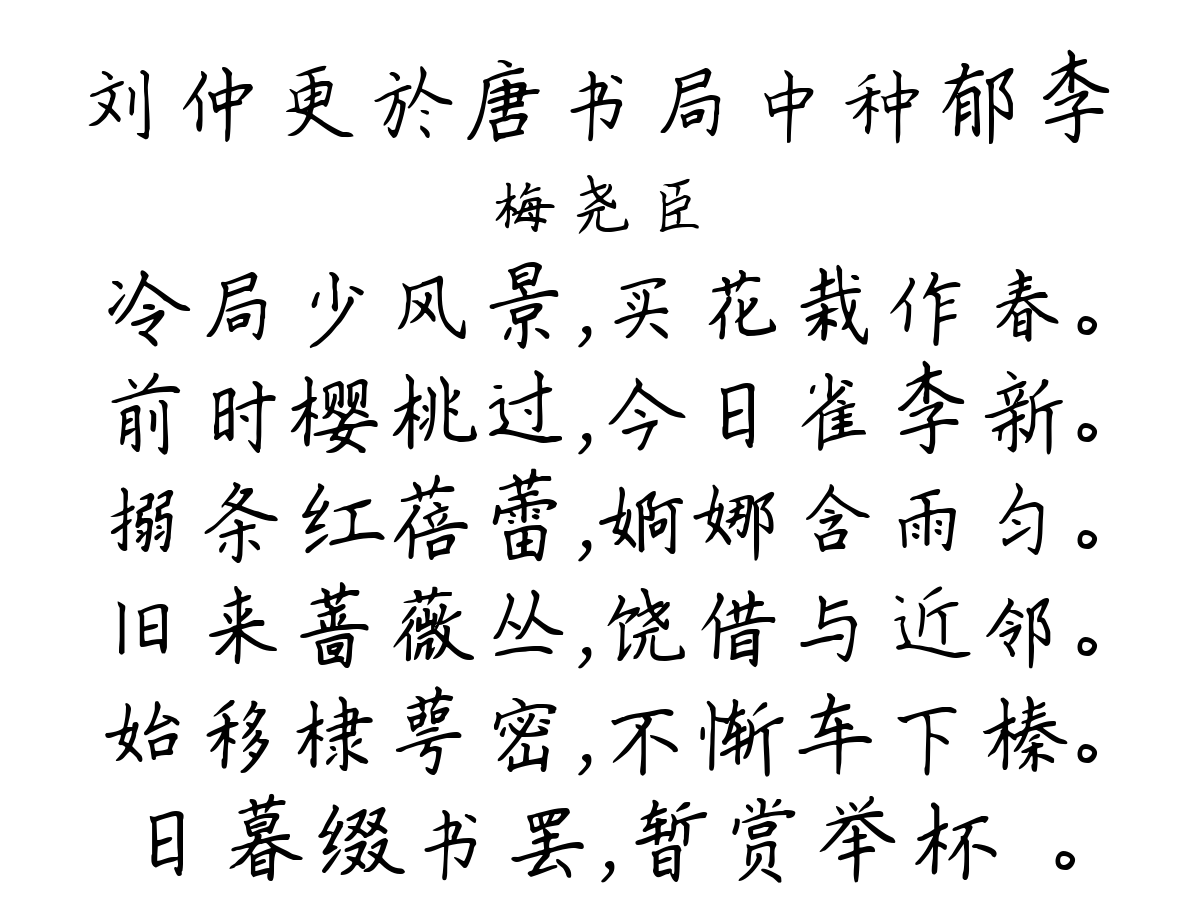 刘仲更於唐书局中种郁李
梅尧臣
冷局少风景,买花栽作春。
前时樱桃过,今日雀李新。
搦条红蓓蕾,婀娜含雨匀。
旧来蔷薇丛,饶借与近邻。
始移棣萼密,不惭车下榛。
日暮缀书罢,暂赏举杯 。